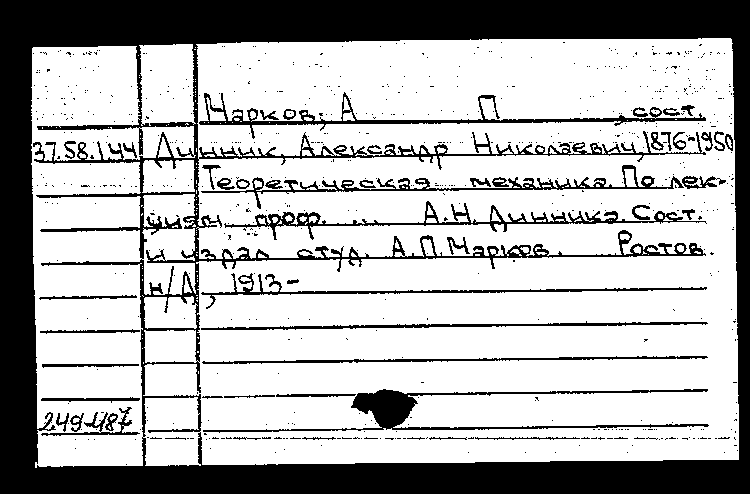 Марков, А П , сост.
37.58.144 Динник, Александр Николаевич, 1876-1950
Теоретическая механика. По лек-
циям проф. ... А.Н. Динника. Сост.
и издал студ. А.П. Марков. Ростов
н/Д, 1913-
249-487